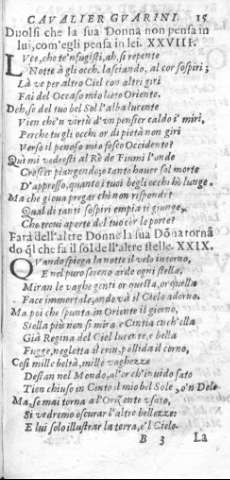 CAVALIER GVARINI. 15
Duolsi che la sua Donna non pensa in
lui, com'egli pensa in lei. XXVIII.
LVce, che te'n fuggisti, ah, sì repente
Notte à gli occh. lasciando, al cor sospiri;
Là ve per altro Ciel con altri giri
Fai del Occaso mio lieto Oriente.
Deh, se del tuo bel Sol l'alba lucente
Vien che'n virtù d'vn pensier caldo i' miri,
Perche tu gli occhi or di pietà non giri
Verso il penoso mio fosco Occidente?
Quì mi vedresti al Rè de Fiumi l'onde
Crescer piangendo; e tanto hauer sol morte
D'appresso, quanto i tuoi begli occhi hò lunge.
Ma che gioua pregar chi non risponde?
Qual di tanti sospiri empia ti giunge,
Che troui aperte del tuo cor le porte?
Farà dell'altre Donne la sua Dõna tornã
do q̃l che fa il sol dell'altre stelle. XXIX.
QVando spiega la notte il velo intorno,
E nel puro sereno arde ogni stella,
Miran le vaghe genti or questa, or quella
Face immortale, andè và il Cielo adorno.
Ma poi che spunta in Oriente il giorno,
Stella più non si mira, e Cintia anch'ella
Già Regina del Ciel lucente, e bella
Fugge, negletta il crin, pallida il corno,
Così mille beltà, mille vaghezze
Destan nel Mondo, al'or ch'inuido fato
Tien chiuso in Cento il mio bel Sole, o'n Delo
Ma, se mai torna a l'Orizonte vsato,
Si vedremo oscurar l'altre bellezze:
E lui solo illustrar la terra, e'l Cielo.
B 3 La